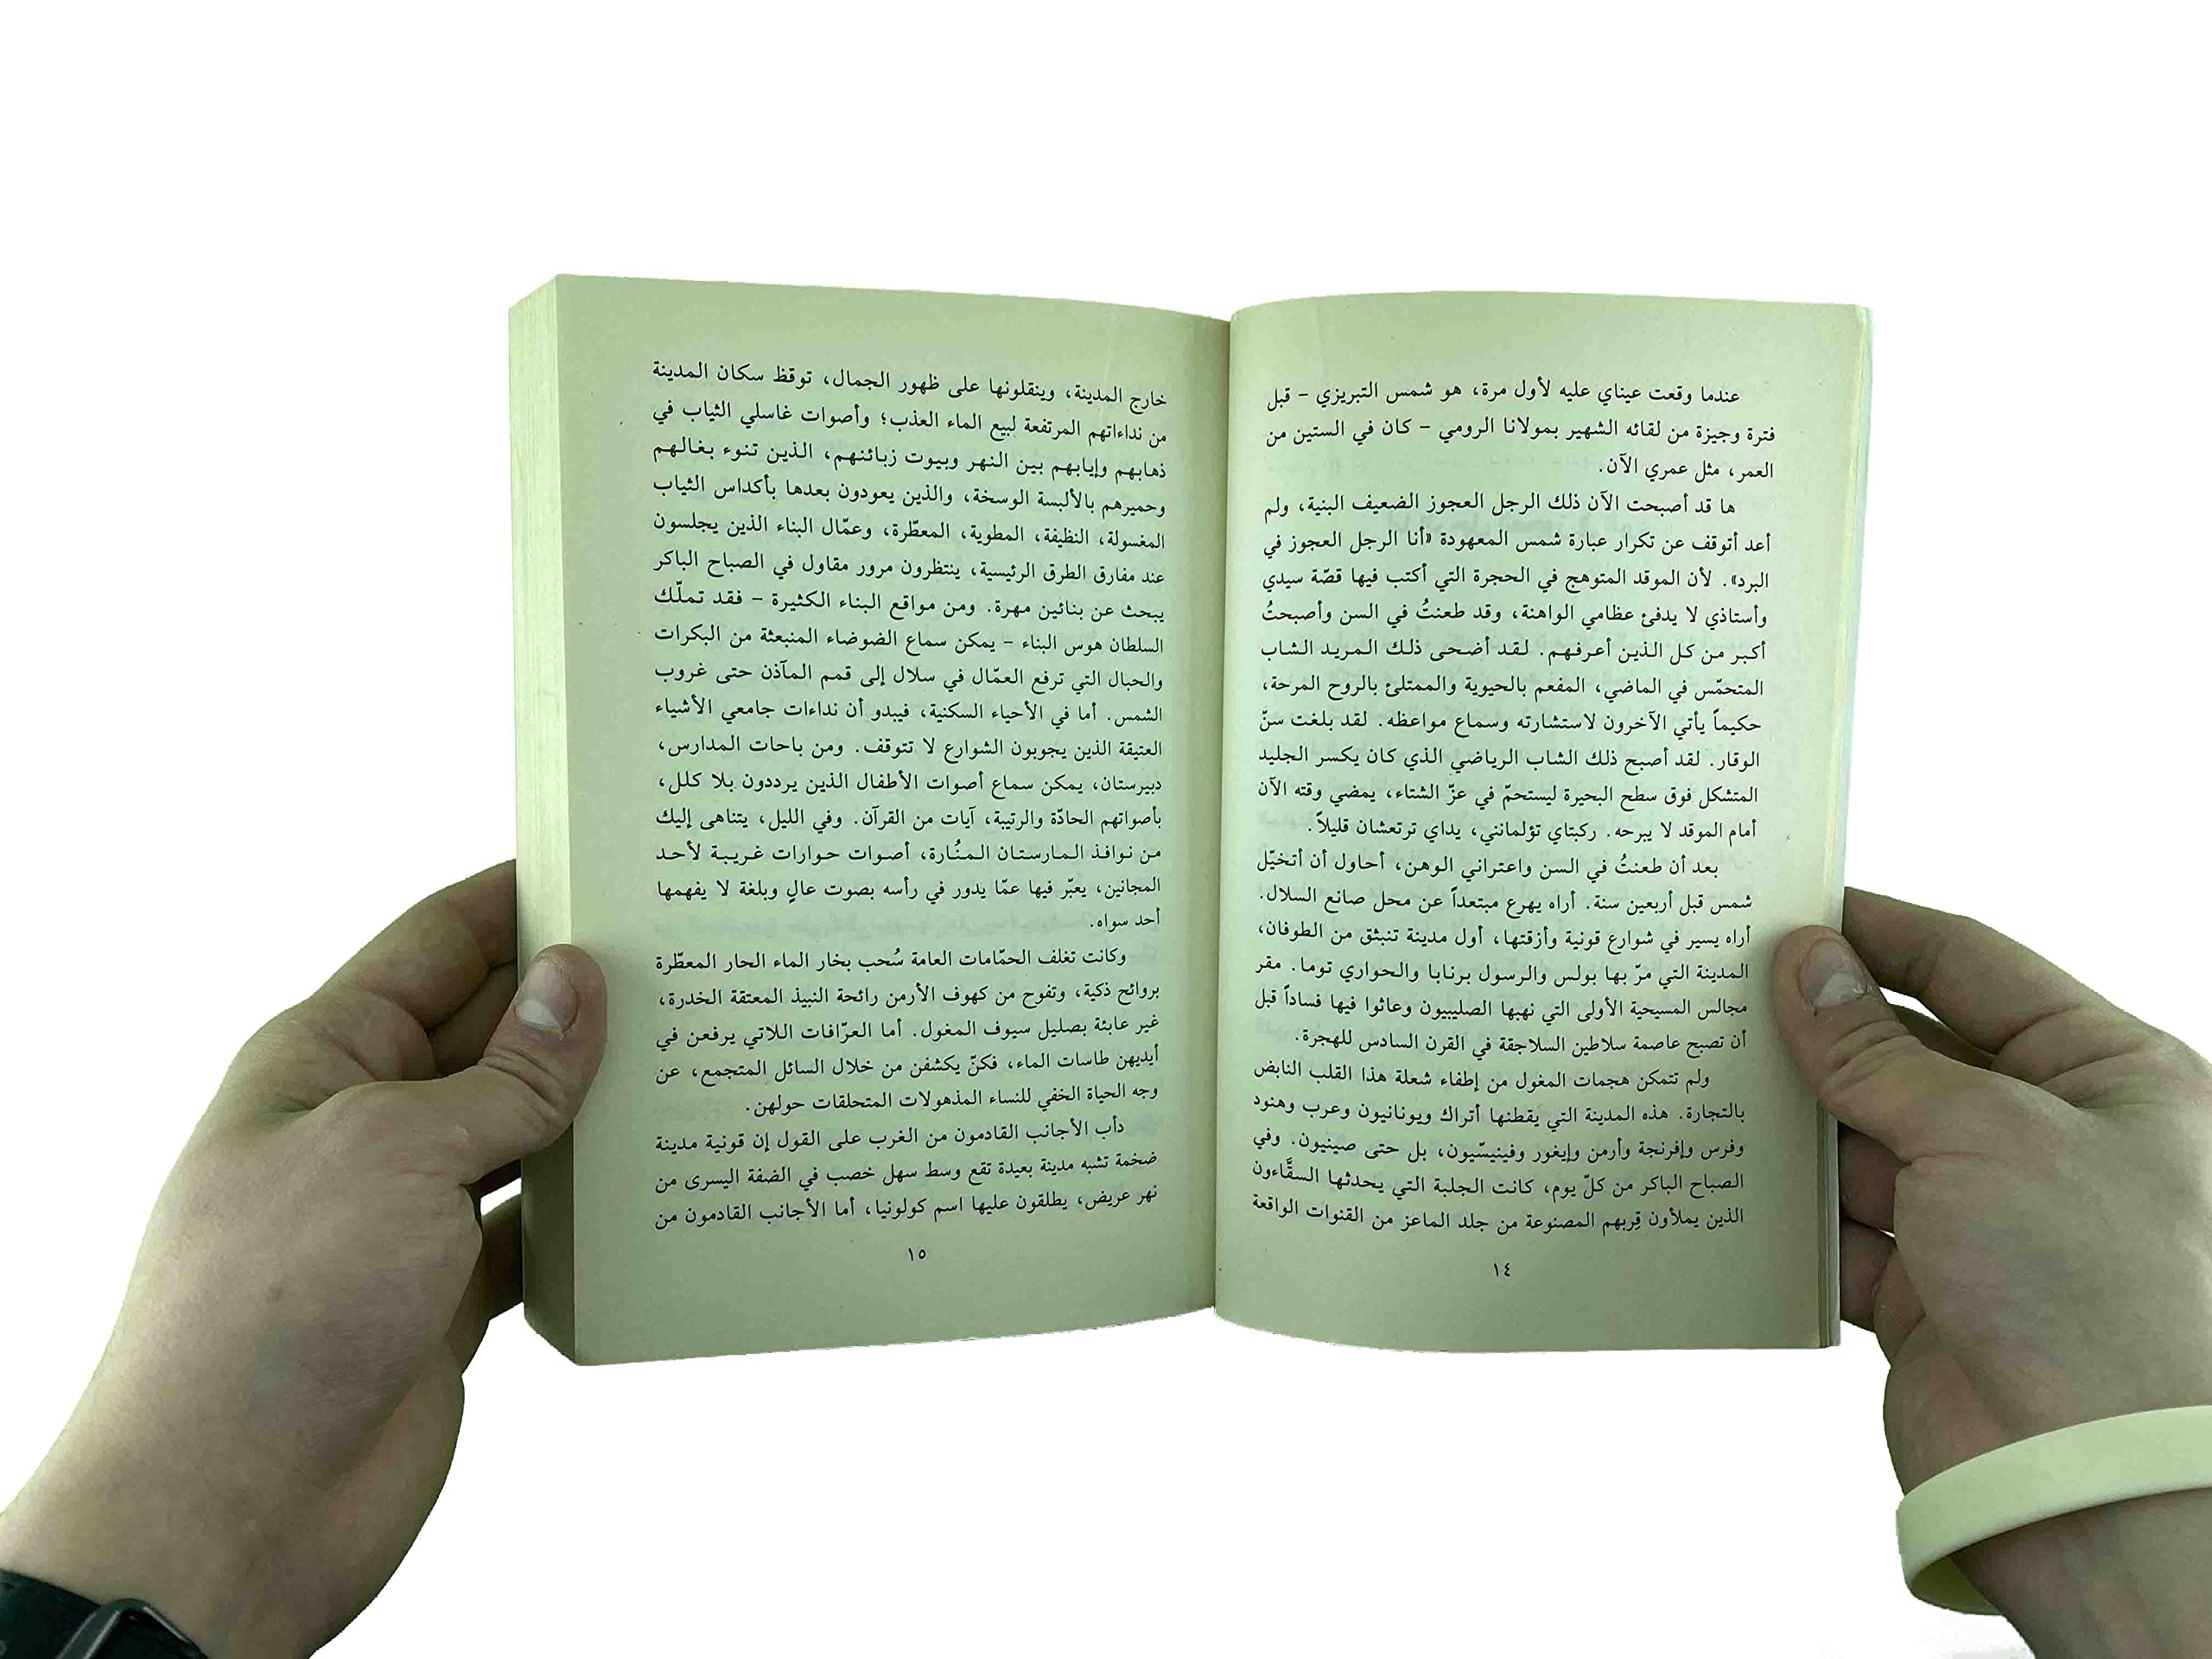 عندما وقعت عيناي عليه لأول مرة، هو شمس التبريزي – قبل
فترة وجيزة من لقائه الشهير بمولانا الرومي – كان في الستين من
العمر، مثل عمري الآن.
ها قد أصبحت الآن ذلك الرجل العجوز الضعيف البنية، ولم
أعد أتوقف عن تكرار عبارة شمس المعهودة «أنا الرجل العجوز في
البرد». لأن الموقد المتوهج في الحجرة التي أكتب فيها قصّة سيدي
وأستاذي لا يدفئ عظامي الواهنة، وقد طعنتُ في السن وأصبحتُ
أكبر من كل الذين أعرفهم. لقد أضحى ذلك المريد الشاب
المتحمّس في الماضي، المفعم بالحيوية والممتلئ بالروح المرحة،
حكيماً يأتي الآخرون لاستشارته وسماع مواعظه. لقد بلغت سنّ
الوقار. لقد أصبح ذلك الشاب الرياضي الذي كان يكسر الجليد
المتشكل فوق سطح البحيرة ليستحمّ في عزّ الشتاء، يمضي وقته الآن
أمام الموقد لا يبرحه. ركبتاي تؤلمانني، يداي ترتعشان قليلاً.
بعد أن طعنتُ في السن واعتراني الوهن، أحاول أن أتخيّل
شمس قبل أربعين سنة. أراه يهرع مبتعداً عن محل صانع السلال.
أراه يسير في شوارع قونية وأزقتها، أول مدينة تنبثق من الطوفان،
المدينة التي مرّ بها بولس والرسول برنابا والحواري توما. مقر
مجالس المسيحية الأولى التي نهبها الصليبيون وعاثوا فيها فساداً قبل
أن تصبح عاصمة سلاطين السلاجقة في القرن السادس للهجرة.
ولم تتمكن هجمات المغول من إطفاء شعلة هذا القلب النابض
بالتجارة. هذه المدينة التي يقطنها أتراك ويونانيون وعرب وهنود
وفرس وإفرنجة وأرمن وإيغور وفينيسّيون، بل حتى صينيون. وفي
الصباح الباكر من كلّ يوم، كانت الجلبة التي يحدثها السقَّاءون
الذين يملأون قِربهم المصنوعة من جلد الماعز من القنوات الواقعة
١٤
خارج المدينة، وينقلونها على ظهور الجمال، توقظ سكان المدينة
من نداءاتهم المرتفعة لبيع الماء العذب؛ وأصوات غاسلي الثياب في
ذهابهم وإيابهم بين النهر وبيوت زبائنهم، الذين تنوء بغالهم
وحميرهم بالألبسة الوسخة، والذين يعودون بعدها بأكداس الثياب
المغسولة، النظيفة، المطوية، المعطّرة، وعمّال البناء الذين يجلسون
عند مفارق الطرق الرئيسية، ينتظرون مرور مقاول في الصباح الباكر
يبحث عن بنائين مهرة. ومن مواقع البناء الكثيرة – فقد تملّك
السلطان هوس البناء – يمكن سماع الضوضاء المنبعثة من البكرات
والحبال التي ترفع العمّال في سلال إلى قمم المآذن حتى غروب
الشمس. أما في الأحياء السكنية، فيبدو أن نداءات جامعي الأشياء
العتيقة الذين يجوبون الشوارع لا تتوقف. ومن باحات المدارس،
دبيرستان، يمكن سماع أصوات الأطفال الذين يرددون بلا كلل،
بأصواتهم الحادّة والرتيبة، آيات من القرآن. وفي الليل، يتناهى إليك
من نوافذ المارستان المنُارة، أصوات حوارات غريبة لأحد
المجانين، يعبّر فيها عمّا يدور في رأسه بصوت عالٍ وبلغة لا يفهمها
أحد سواه.
وكانت تغلف الحمّامات العامة سُحب بخار الماء الحار المعطّرة
بروائح ذكية، وتفوح من كهوف الأرمن رائحة النبيذ المعتقة الخدرة،
غير عابئة بصليل سيوف المغول. أما العرّافات اللاتي يرفعن في
أيديهن طاسات الماء، فكنّ يكشفن من خلال السائل المتجمع، عن
وجه الحياة الخفي للنساء المذهولات المتحلقات حولهن.
دأب الأجانب القادمون من الغرب على القول إن قونية مدينة
ضخمة تشبه مدينة بعيدة تقع وسط سهل خصب في الضفة اليسرى من
نهر عريض، يطلقون عليها اسم كولونيا، أما الأجانب القادمون من
١٥